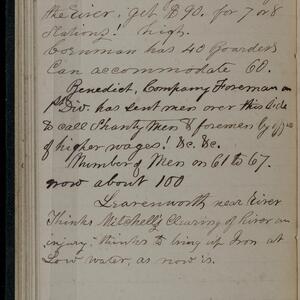 the River; get $90. for 7 or 8
Stations! high.
Cornman has 40 Boarders
Can accommodate 60.
Benedict, Company Foreman on
1st Div. has sent men over this side
to call Shanty Men & foremen by offer
of higher wages! &c. &c.
Number of Men on 61 to 67.
now about 100
Leavenworth near River
Thinks Mitchell's Clearing of River an
injury; thinks to bring up Iron at
Low water, as now is.